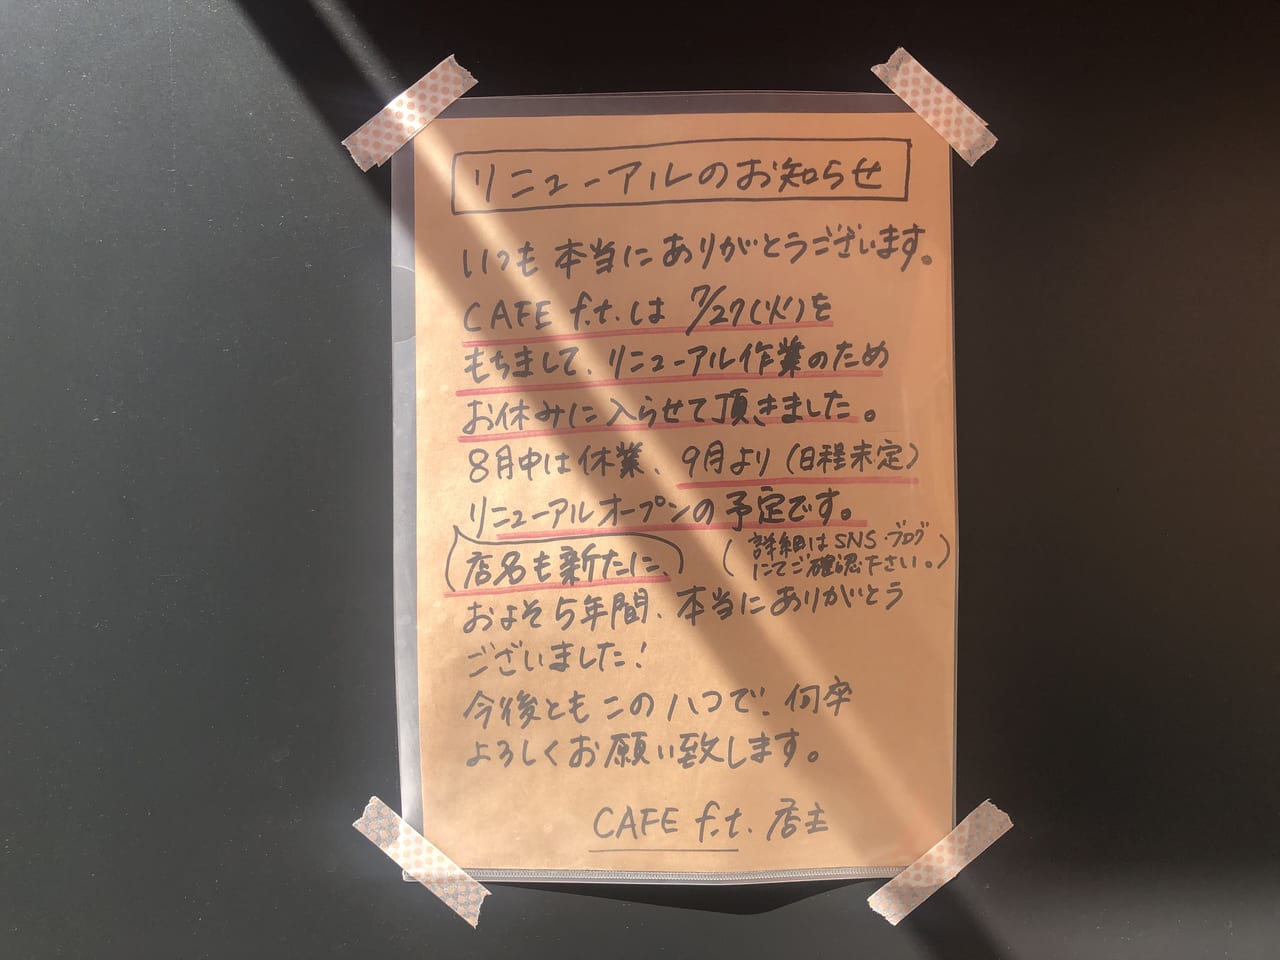 リニューアルのお知らせ
いつも本当にありがとうございます。
CAFE f.t.は 7/27(火)を
もちまして、リニューアル作業のため
お休みに入らせて頂きました。
8月中は休業、9月より(日程未定)
リニューアルオープンの予定です。
(店名も新たに、)
(詳細はSNS・ブログ
にてご確認下さい。)
およそ5年間、本当にありがとう
ございました!
今後ともこのハつで、何卒
よろしくお願い致します。
CAFE f.t. 店主